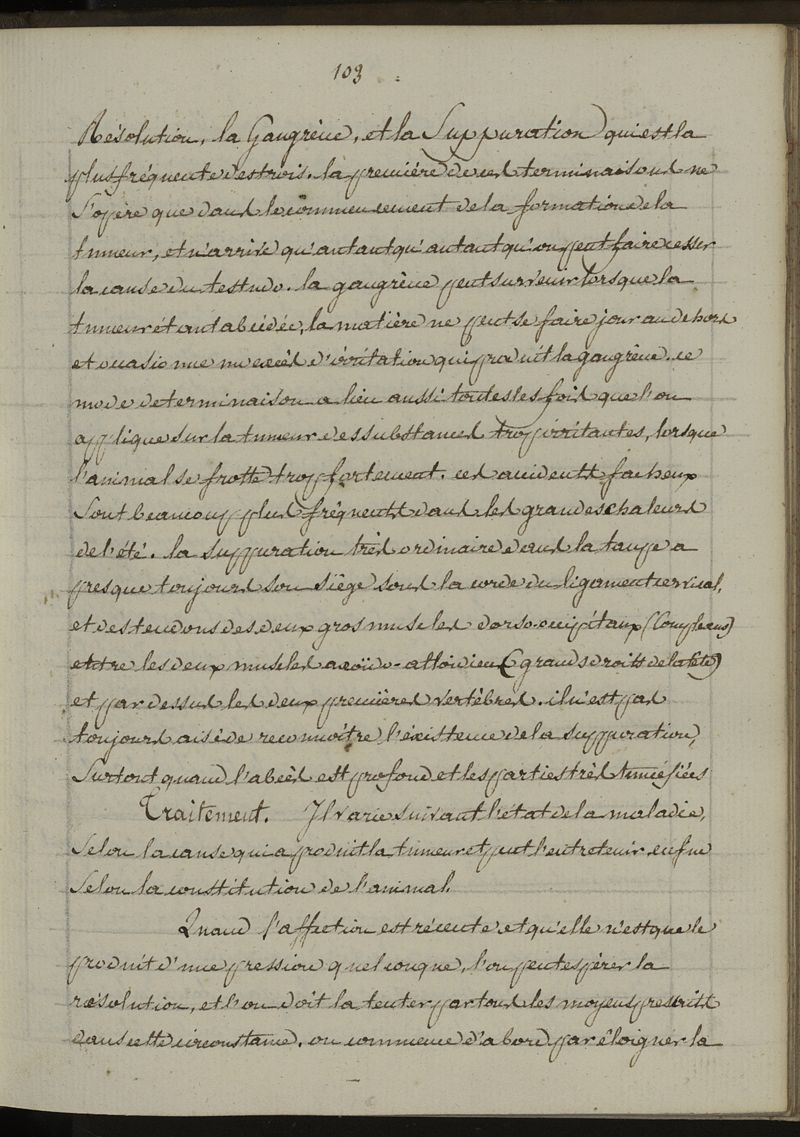 103
Résolution, la Gangrène, et la Suppuration qui est la
plus fréquente des trois. la première de ces terminaisons ne
s'opère que dans le commencement de la formation de la
tumeur, et n'arrive qu'autant qu'autant qu'on peut faire cesser
la cause du testudo. la gangrène peut survenir lorsque la
tumeur étant abcédée, la matière ne peut se faire jour au dehors
et occasionne un excès d'irritation qui produit la gangrène. ce
mode de terminaison a lieu aussi toutes les fois que l'on
applique sur la tumeur des substances trop irritantes, lorsque
l'animal se frotte trop fortement. ces accidents facheux
sont beaucoup plus fréquents dans les grandes chaleurs
de l'été. la suppuration très ordinaire dans la taupe a
presque toujours son siège sous la corde du ligament cervical,
et des tendons des deux gros muscles dorso-occipitaux (Complexus)
entre les deux muscles axoïdo-atloïdiens (grands droits de la tête)
et par dessus les deux premières vertèbres. il n'est pas
toujours aisé de reconnoître l'éxistence de la suppuration,
surtout quand l'abcès est profond et les parties très tuméfiées
Traitement. Il varie suivant l'état de la maladie,
selon la cause qui a produit la tumeur et peut l'entretenir, enfin
selon la constitution de l'animal.
Quand l'affection est récente et qu'elle n'est que le
produit d'une pression quelconque, l'on peut espérer la
résolution, et l'on doit la tenter par tous les moyens prescrits
dans cette circonstance. on commence d'abord par éloigner la